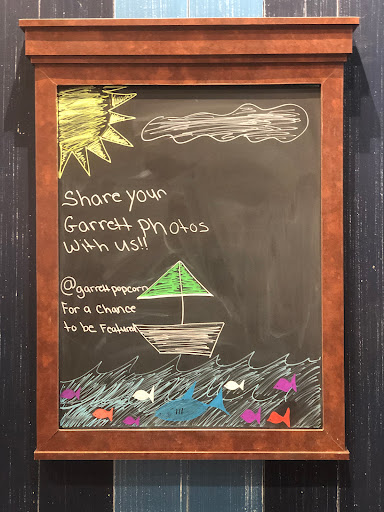 Share your
Garrett photos
with us!!
@garrettpopcorn
For a Chance
to be Featured